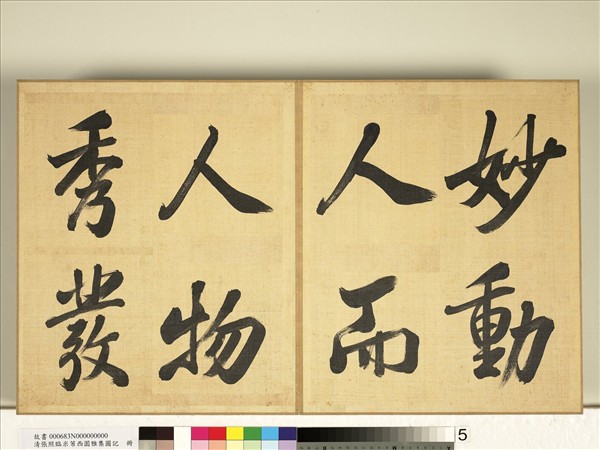 妙動
人而
人物
秀發
故書 000683N000000000
清張照臨米芾西園雅集圖記 冊
5